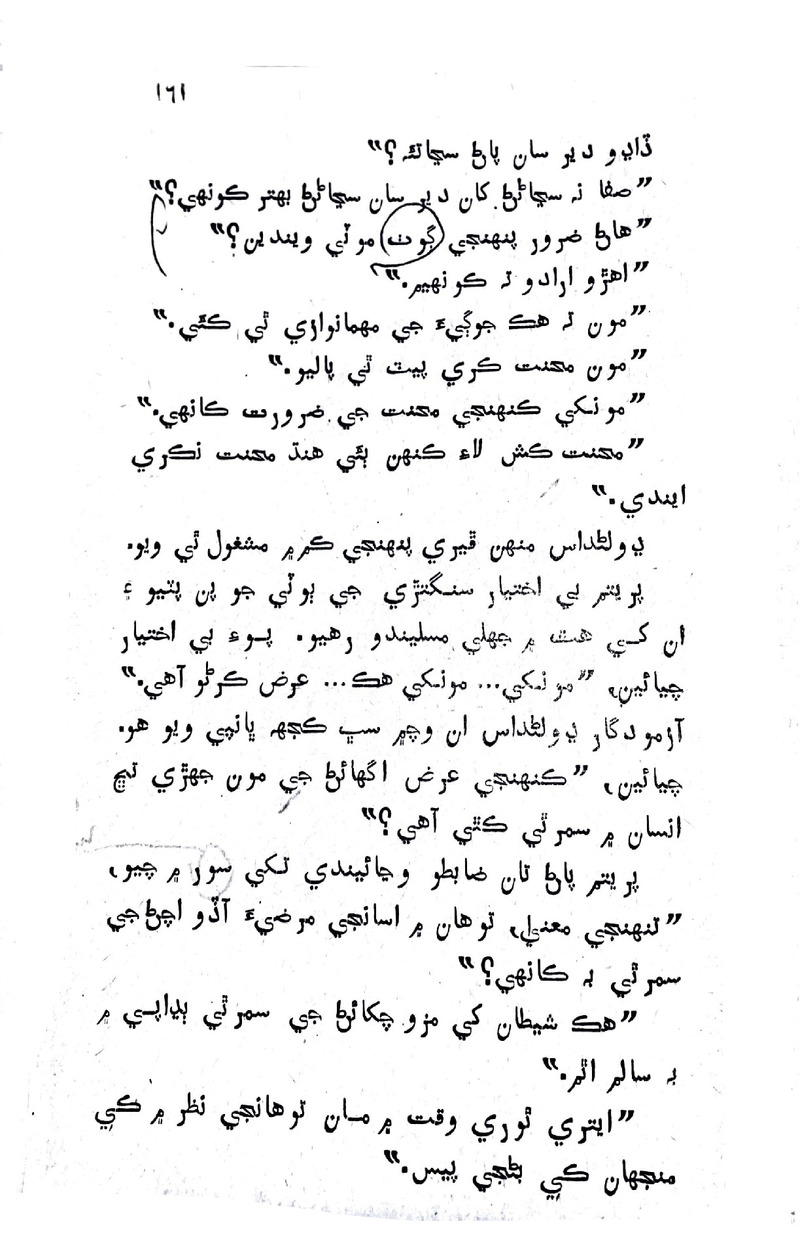 ۱٦۱
ڏاڍو دير سان پاڻ سڃاتئہ؟"
"صفا نہ سڃاڻڻ کان دير سان سڃاڻڻ بهتر ڪونهي؟"
"هاڻ ضرور پنهنجي ڳوٺ موٽي ويندين؟"
"اهڙو ارادو تہ ڪونهيم."
"مون تہ هڪ جوڳيءَ جي مهمانوازي ٿي ڪئي."
"مون محنت ڪري پيٽ ٿي پاليو."
"مونکي ڪنهنجي محنت جي ضرورت ڪانهي."
"محنت ڪش لاءِ ڪنهن ٻئي هنڌ محنت نڪري
ايندي."
ڊولڻداس منهن ڦيري پنهنجي ڪم ۾ مشغول ٿي ويو.
پريتم بي اختيار سنگتڙي جي ٻوٽي جو پن پٽيو ۽
ان کي هٿ ۾ جهلي مسليندو رهيو. پوءِ بي اختيار
چيائين، "مونکي... مونکي هڪ... عرض ڪرڻو آهي."
آزمودگار ڊولڻداس ان وچ ۾ سڀ ڪجهہ ڀانپي ويو هو.
چيائين، "ڪنهنجي عرض اگهائڻ جي مون جهڙي تڇ
انسان ۾ سمرٿي ڪٿي آهي؟"
پريتم پاڻ تان ضابطو وڃائيندي تکي سور ۾ چيو،
"تنهنجي معنيٰ، توهان ۾ اسانجي مرضيءَ آڏو اچڻ جي
سمرٿي بہ ڪانهي؟"
"هڪ شيطان کي مزو چکائڻ جي سمرٿي ٻڍاپي ۾
بہ سالم اٿم."
"ايتري ٿوري وقت ۾ مان توهانجي نظر ۾ ڪي
منجهان ڪي بڻجي پيس."